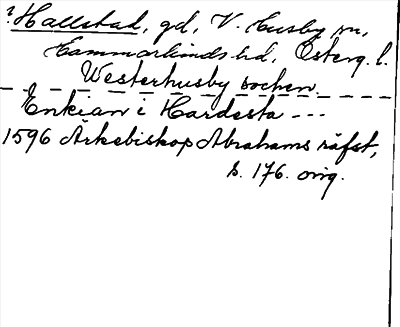 ? Hallstad, gd, V. Husby sn,
Hammarkinds hd, Österg. l.
Westerhusby sochen.
Enkian i Hardesta ---
1596 Ärkebiskop Abrahams räfst,
s. 176. orig.